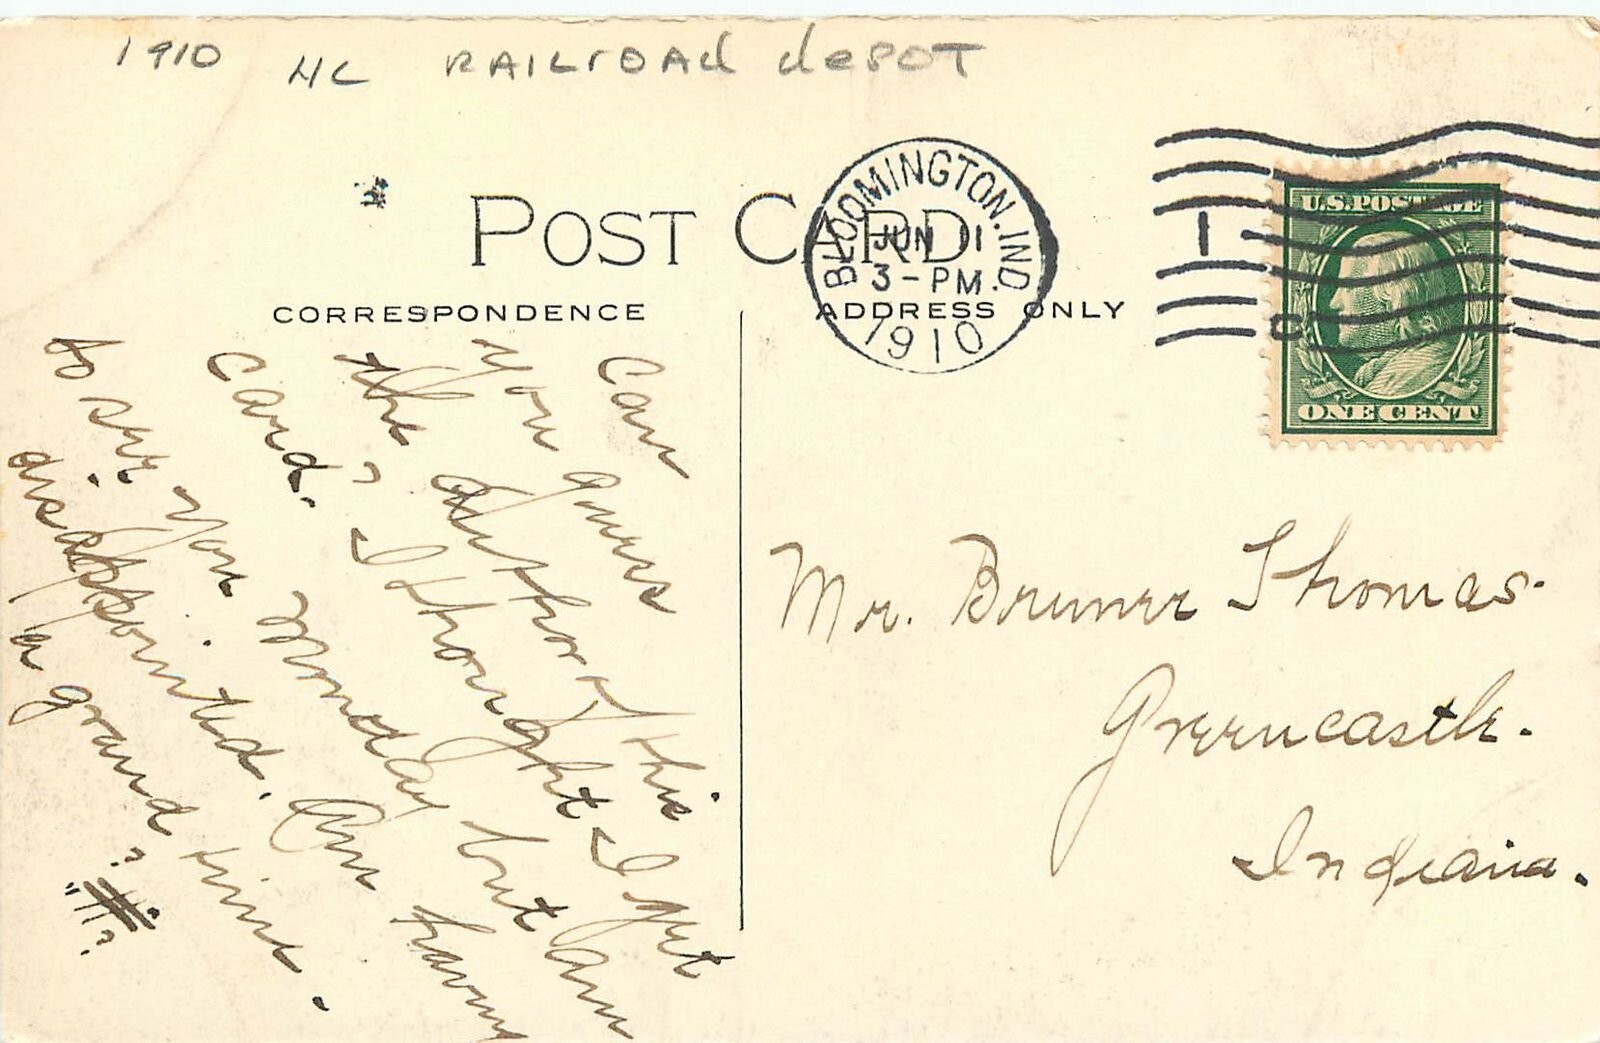 1910 HC RAILrOAd dePOT
POST CARD
CORRESPONDENCE
ADDRESS ONLY
BLOOMINGTON. IND.
JUN 11
3-PM.
1910
1
U.S. POSTAGE
ONE CENT
Can
you guess
the author this
card? I thought I get
to see you Monday but am
disappointed. Am having
a grand time.
Mr. Bruner Thomas.
Greencastle.
Indiana.